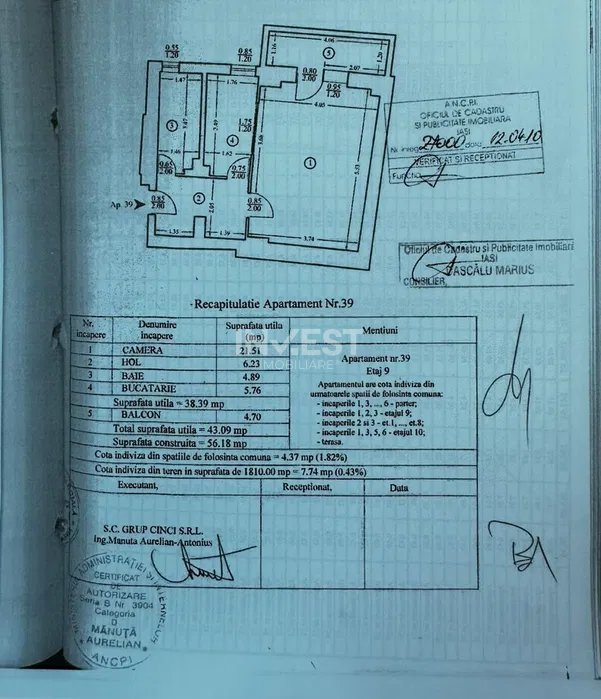 0.55
1.20
0.85
1.20
4.06
1.16
5
1.20
2.07
0.80
2.00
0.95
1.20
1.47
1.76
4.05
3
4
1.75
1.20
1
1.46
1.62
0.65
2.00
0.75
2.00
5.53
2
Ap. 39
0.85
2.00
0.85
2.00
1.35
1.39
3.74
A.N.C.P.I.
OFICIUL DE CADASTRU
SI PUBLICITATE IMOBILIARA
IASI
Nr. inreg. data 12.04.10
VERIFICAT SI RECEPTIONAT
Oficiul de Cadastru si Publicitate Imobiliara
IASI
VASCĂLU MARIUS
CONSILIER,
Recapitulatie Apartament Nr.39
Nr. incapere Denumire incapere Suprafata utila (mp) Mentiuni
1 CAMERA 21.51
2 HOL 6.23
3 BAIE 4.89
4 BUCATARIE 5.76
Suprafata utila = 38.39 mp
5 BALCON 4.70
Total suprafata utila = 43.09 mp
Suprafata construita = 56.18 mp
Apartament nr.39
Etaj 9
Apartamentul are cota indiviza din
urmatoarele spatii de folosinta comuna:
- incaperile 1, 3, ..., 6 - parter;
- incaperile 1, 2, 3 - etajul 9;
- incaperile 2 si 3 - et.1, ..., et.8;
- incaperile 1, 3, 5, 6 - etajul 10;
- terasa.
Cota indiviza din spatiile de folosinta comuna = 4.37 mp (1.82%)
Cota indiviza din teren in suprafata de 1810.00 mp = 7.74 mp (0.43%)
Executant, Receptionat, Data
S.C. GRUP CINCI S.R.L.
Ing.Manuta Aurelian-Antonius
CERTIFICAT
DE
AUTORIZARE
Seria B Nr. 3904
Categoria
D
MĂNUȚĂ
AURELIAN
ANCPI
INVEST
IMOBILIARE